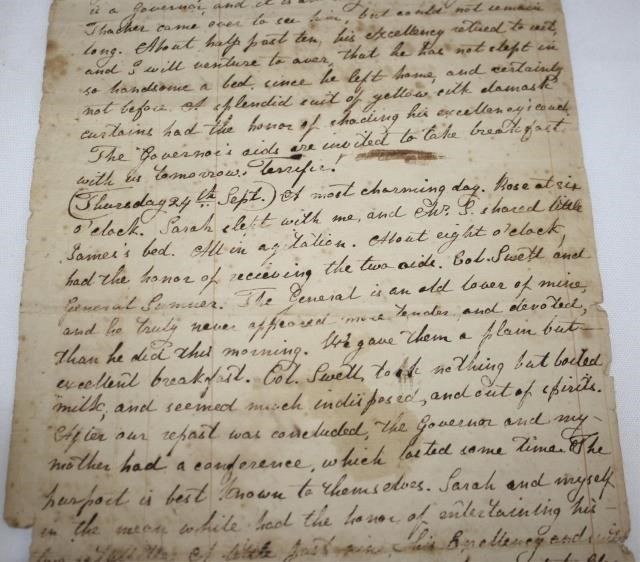 is a Governor, and it is an
Thacher came over to see him, but could not remain
long. About half past ten, his excellency retired to rest,
and I will venture to aver, that he has not slept in
so handsome a bed, since he left home, and certainly
not before. A splendid suit of yellow silk damask
curtains had the honor of shading his excellency's couch.
The Governor's aids are invited to take breakfast
with us tomorrow. Terrific!
(Thursday 24th Sept.) A most charming day. Rose at six
o'clock. Sarah slept with me, and Mr. S. shared little
James's bed. All in agitation. About eight o'clock,
had the honor of recieving the two aids. Col. Swett and
General Sumner. The General is an old lover of mine,
and he truly never appeared more tender, and devoted,
than he did this morning. We gave them a plain but
excellent breakfast. Col. Swett, took nothing but boiled
milk, and seemed much indisposed, and out of spirits.
After our repast was concluded, the Governor and my
mother had a conference, which lasted some time. The
purport is best known to themselves. Sarah and myself
in the mean while had the honor of entertaining his
His Excellency and